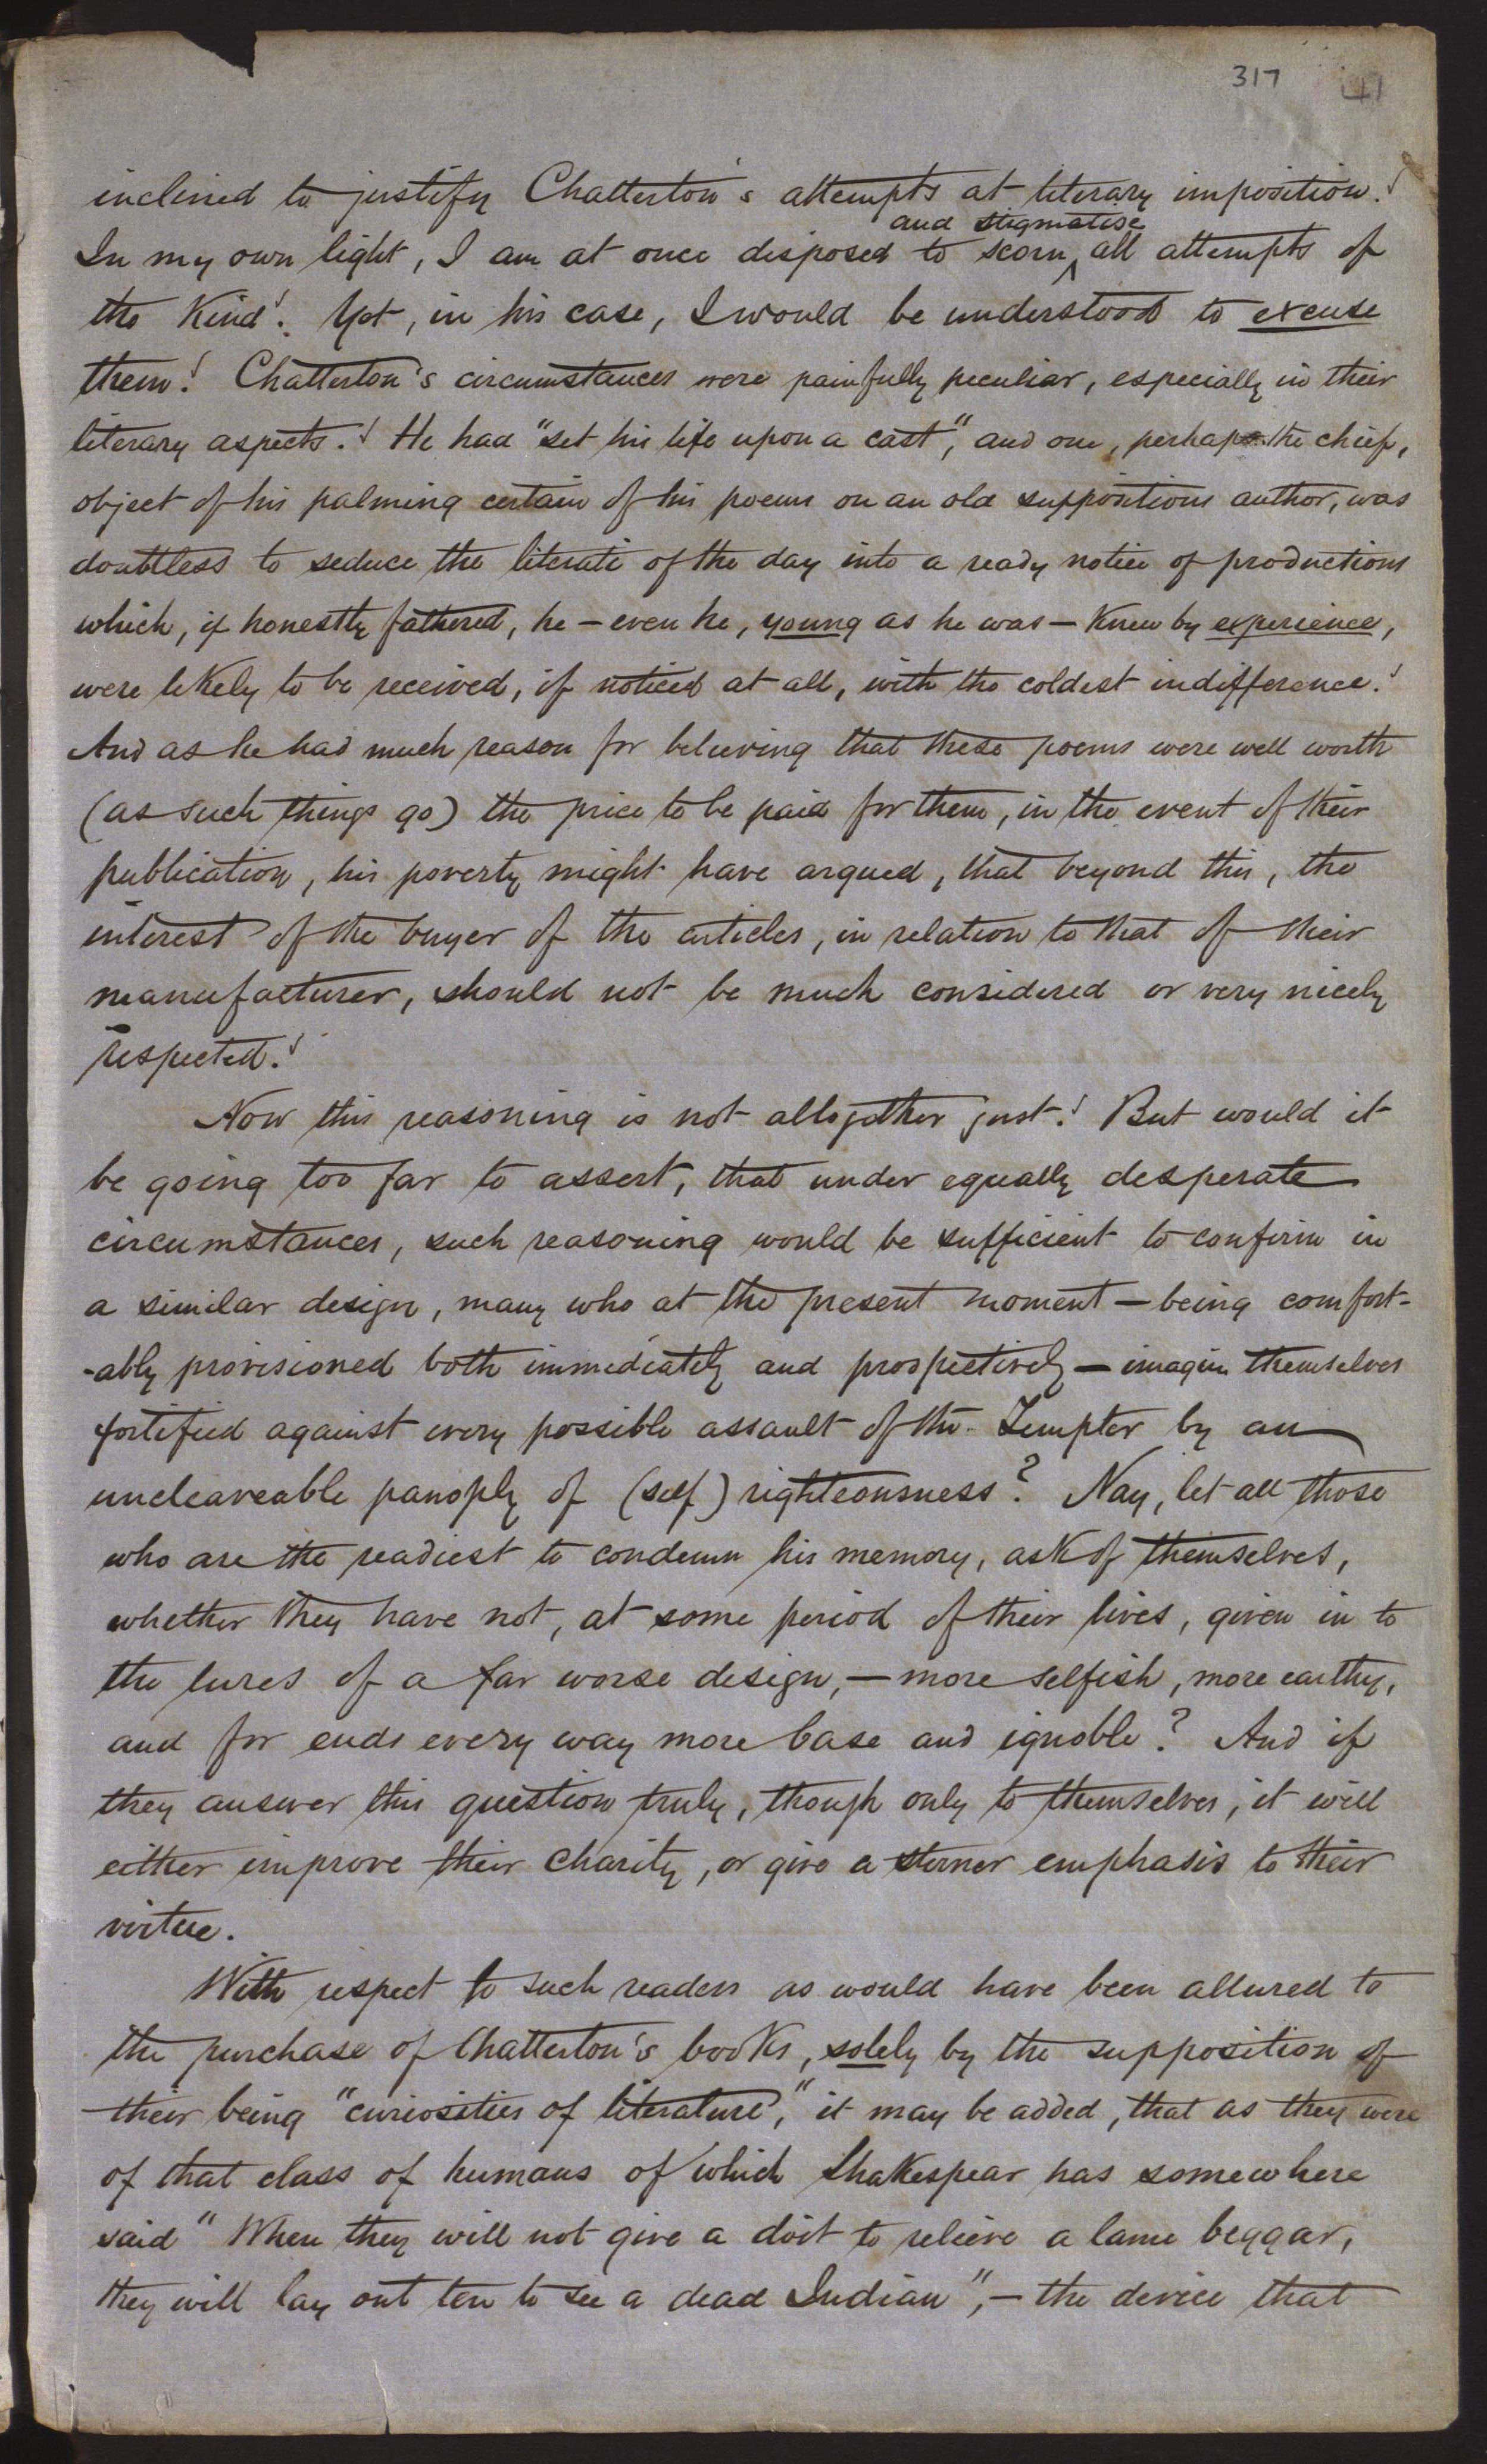 317 41
inclined to justify Chatterton's attempts at literary imposition!
and stigmatise
In my own light, I am at once disposed to scorn ^ all attempts of
the Kind! Yet, in his case, I would be understood to excuse
them! Chatterton's circumstances were painfully peculiar, especially in their
literary aspects.! He had "set his life upon a cast", and one, perhaps the chief,
object of his palming certain of his poems on an old supposititious author, was
doubtless to seduce the literati of the day into a ready notice of productions
which, if honestly fathered, he — even he, young as he was — Knew by experience,
were likely to be received, if noticed at all, with the coldest indifference!
And as he had much reason for believing that these poems were well worth
(as such things go) the price to be paid for them, in the event of their
publication, his poverty might have argued, that beyond this, the
interest of the buyer of the articles, in relation to that of their
manufacturer, should not be much considered or very nicely
respected!
Now this reasoning is not altogether just! But would it
be going too far to assert, that under equally desperate
circumstances, such reasoning would be sufficient to confirm in
a similar design, many who at the present moment — being comfort-
-ably provisioned both immediately and prospectively — imagine themselves
fortified against every possible assault of the Tempter by an
uncleaveable panoply of (self) righteousness? Nay, let all those
who are the readiest to condemn his memory, ask of themselves,
whether they have not, at some period of their lives, given in to
the lures of a far worse design, — more selfish, more earthy,
and for ends every way more base and ignoble? And if
they answer this question truly, though only to themselves, it will
either improve their charity, or give a sterner emphasis to their
virtue.
With respect to such readers as would have been allured to
the purchase of Chatterton's books, solely by the supposition of
their being "curiosities of literature," it may be added, that as they were
of that class of humans of which Shakespear has somewhere
said "When they will not give a doit to relieve a lame beggar,
they will lay out ten to see a dead Indian", — the device that